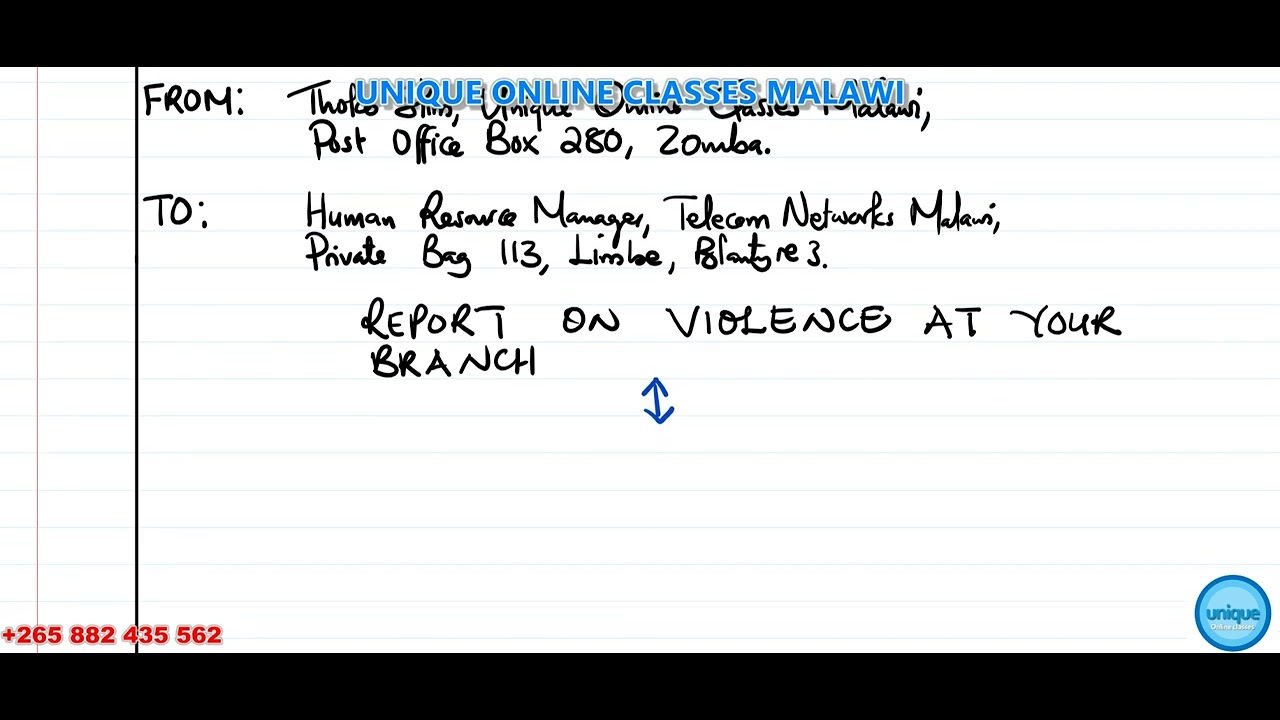 UNIQUE ONLINE CLASSES MALAWI
FROM: Thoko Unique Online Classes Malawi,
Post Office Box 280, Zomba.
TO: Human Resource Manager, Telecom Networks Malawi,
Private Bag 113, Limbe, Blantyre 3.
REPORT ON VIOLENCE AT YOUR
BRANCH
+265 882 435 562
unique
Online classes